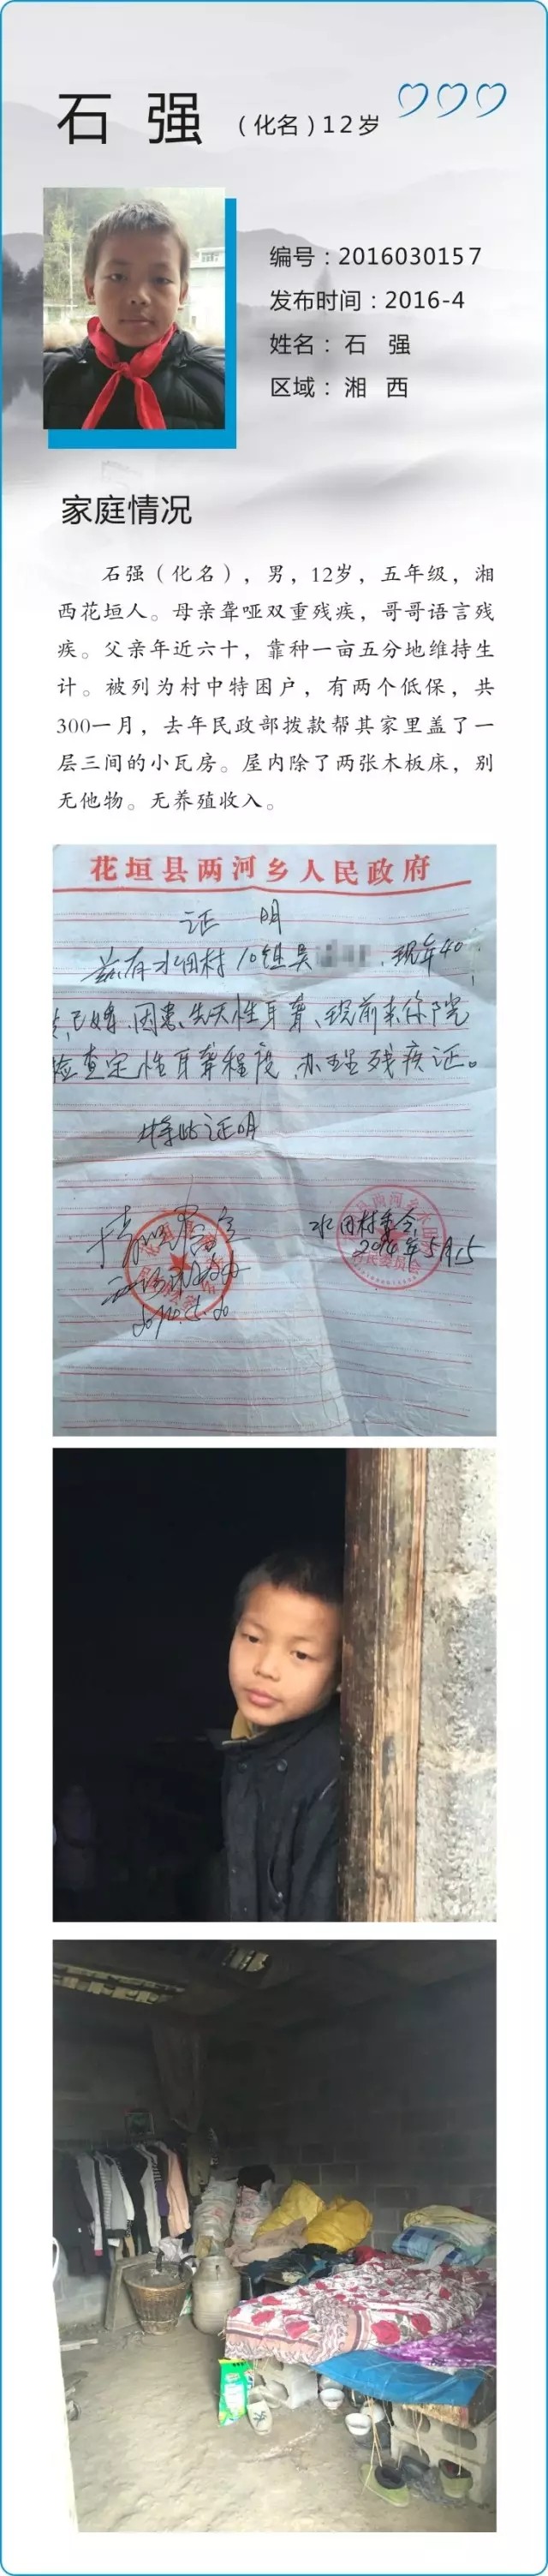 石 强 （化名）12岁
编号：2016030157
发布时间：2016-4
姓名： 石 强
区域： 湘 西
家庭情况
石强（化名），男，12岁，五年级，湘
西花垣人。母亲聋哑双重残疾，哥哥语言残
疾。父亲年近六十，靠种一亩五分地维持生
计。被列为村中特困户，有两个低保，共
300一月，去年民政部拨款帮其家里盖了一
层三间的小瓦房。屋内除了两张木板床，别
无他物。无养殖收入。
花垣县两河乡人民政府
证 明
兹有水田村10组吴 现年40
已婚.因患先天性耳聋、现前来你院
检查定性耳聋程度.办理残疾证。
特此证明
水田村委会
2014年5月15